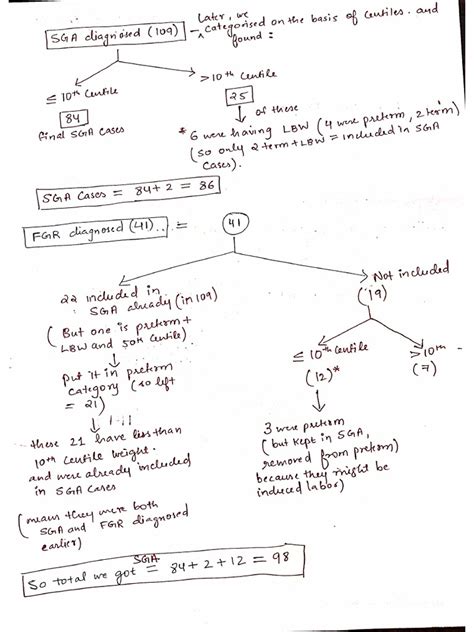 Later, we
SGA diagnosed (109) - categorised on the basis of centiles. and
found :
≤ 10th Centile
>10th Centile
84
25
final SGA cases
of these
* 6 were having LBW (4 were preterm, 2 term)
(so only 2 term+LBW = included in SGA
cases).
SGA Cases = 84+2 = 86
FGR diagnosed (41)... =
41
22 included in
SGA already (in 109)
(But one is preterm +
LBW and 50th Centile)
Not included
(19)
≤ 10th Centile
(12)*
>10th
(7)
Put it in preterm
category (so left
= 21)
these 21 have less than
10th Centile weight.
and were already included
in SGA Cases
(means they were both
SGA and FGR diagnosed
earlier)
3 were preterm
(but kept in SGA,
removed from preterm)
because they might be
induced labor)
SGA
So total we got = 84+2+12 = 98